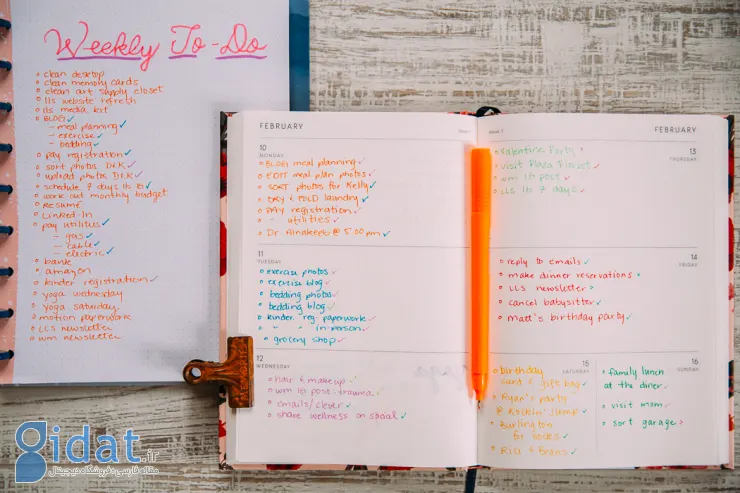 Weekly To-Do
clean desktop
clean memory cards
clean art supply closet
lls website refresh
lls media kit
BLOG:
- meal planning ✓
- exercise ✓
- bedding ✓
pay registration ✓
sort photos DEK ✓
upload photos DEK ✓
schedule 7 days ✓
work out monthly budget
RESUME
Linked-In
pay utilities ✓
- gas ✓
- cable ✓
- electric ✓
bank
amazon
kinder registration ✓
yoga wednesday
yoga saturday
motion paperwork
LLS newsletter
wm newsletter
FEBRUARY
10
MONDAY
BLOG: meal planning ✓
EDIT meal plan photos ✓
SORT photos for Kelly ✓
DRY & FOLD laundry ✓
PAY registration ✓
" utilities ✓
Dr. @ 5:00 pm ✓
11
TUESDAY
exercise photos ✓
exercise blog ✓
bedding photos ✓
bedding blog ✓
kinder reg. paperwork ✓
" " in-person ✓
grocery shop ✓
12
WEDNESDAY
hair & makeup ✓
wm post-trauma ✓
emails/clever ✓
share wellness on social ✓
FEBRUARY
13
THURSDAY
Valentine Party
visit Planet ✓
wm post ✓
LLS 7 days ✓
14
FRIDAY
reply to emails ✓
make dinner reservations >
LLS newsletter >
cancel babysitter ✓
Matt's birthday party ✓
15
SATURDAY
birthday
card & gift bag ✓
Ryan's party
@ Rockin' Jump ✓
Burlington
for bodes ✓
Rise & Beans ✓
16
SUNDAY
family lunch
at the diner ✓
visit mom ✓
sort garage >
gidat.ir
مقاله فارسی و فروشگاه دیجیتال